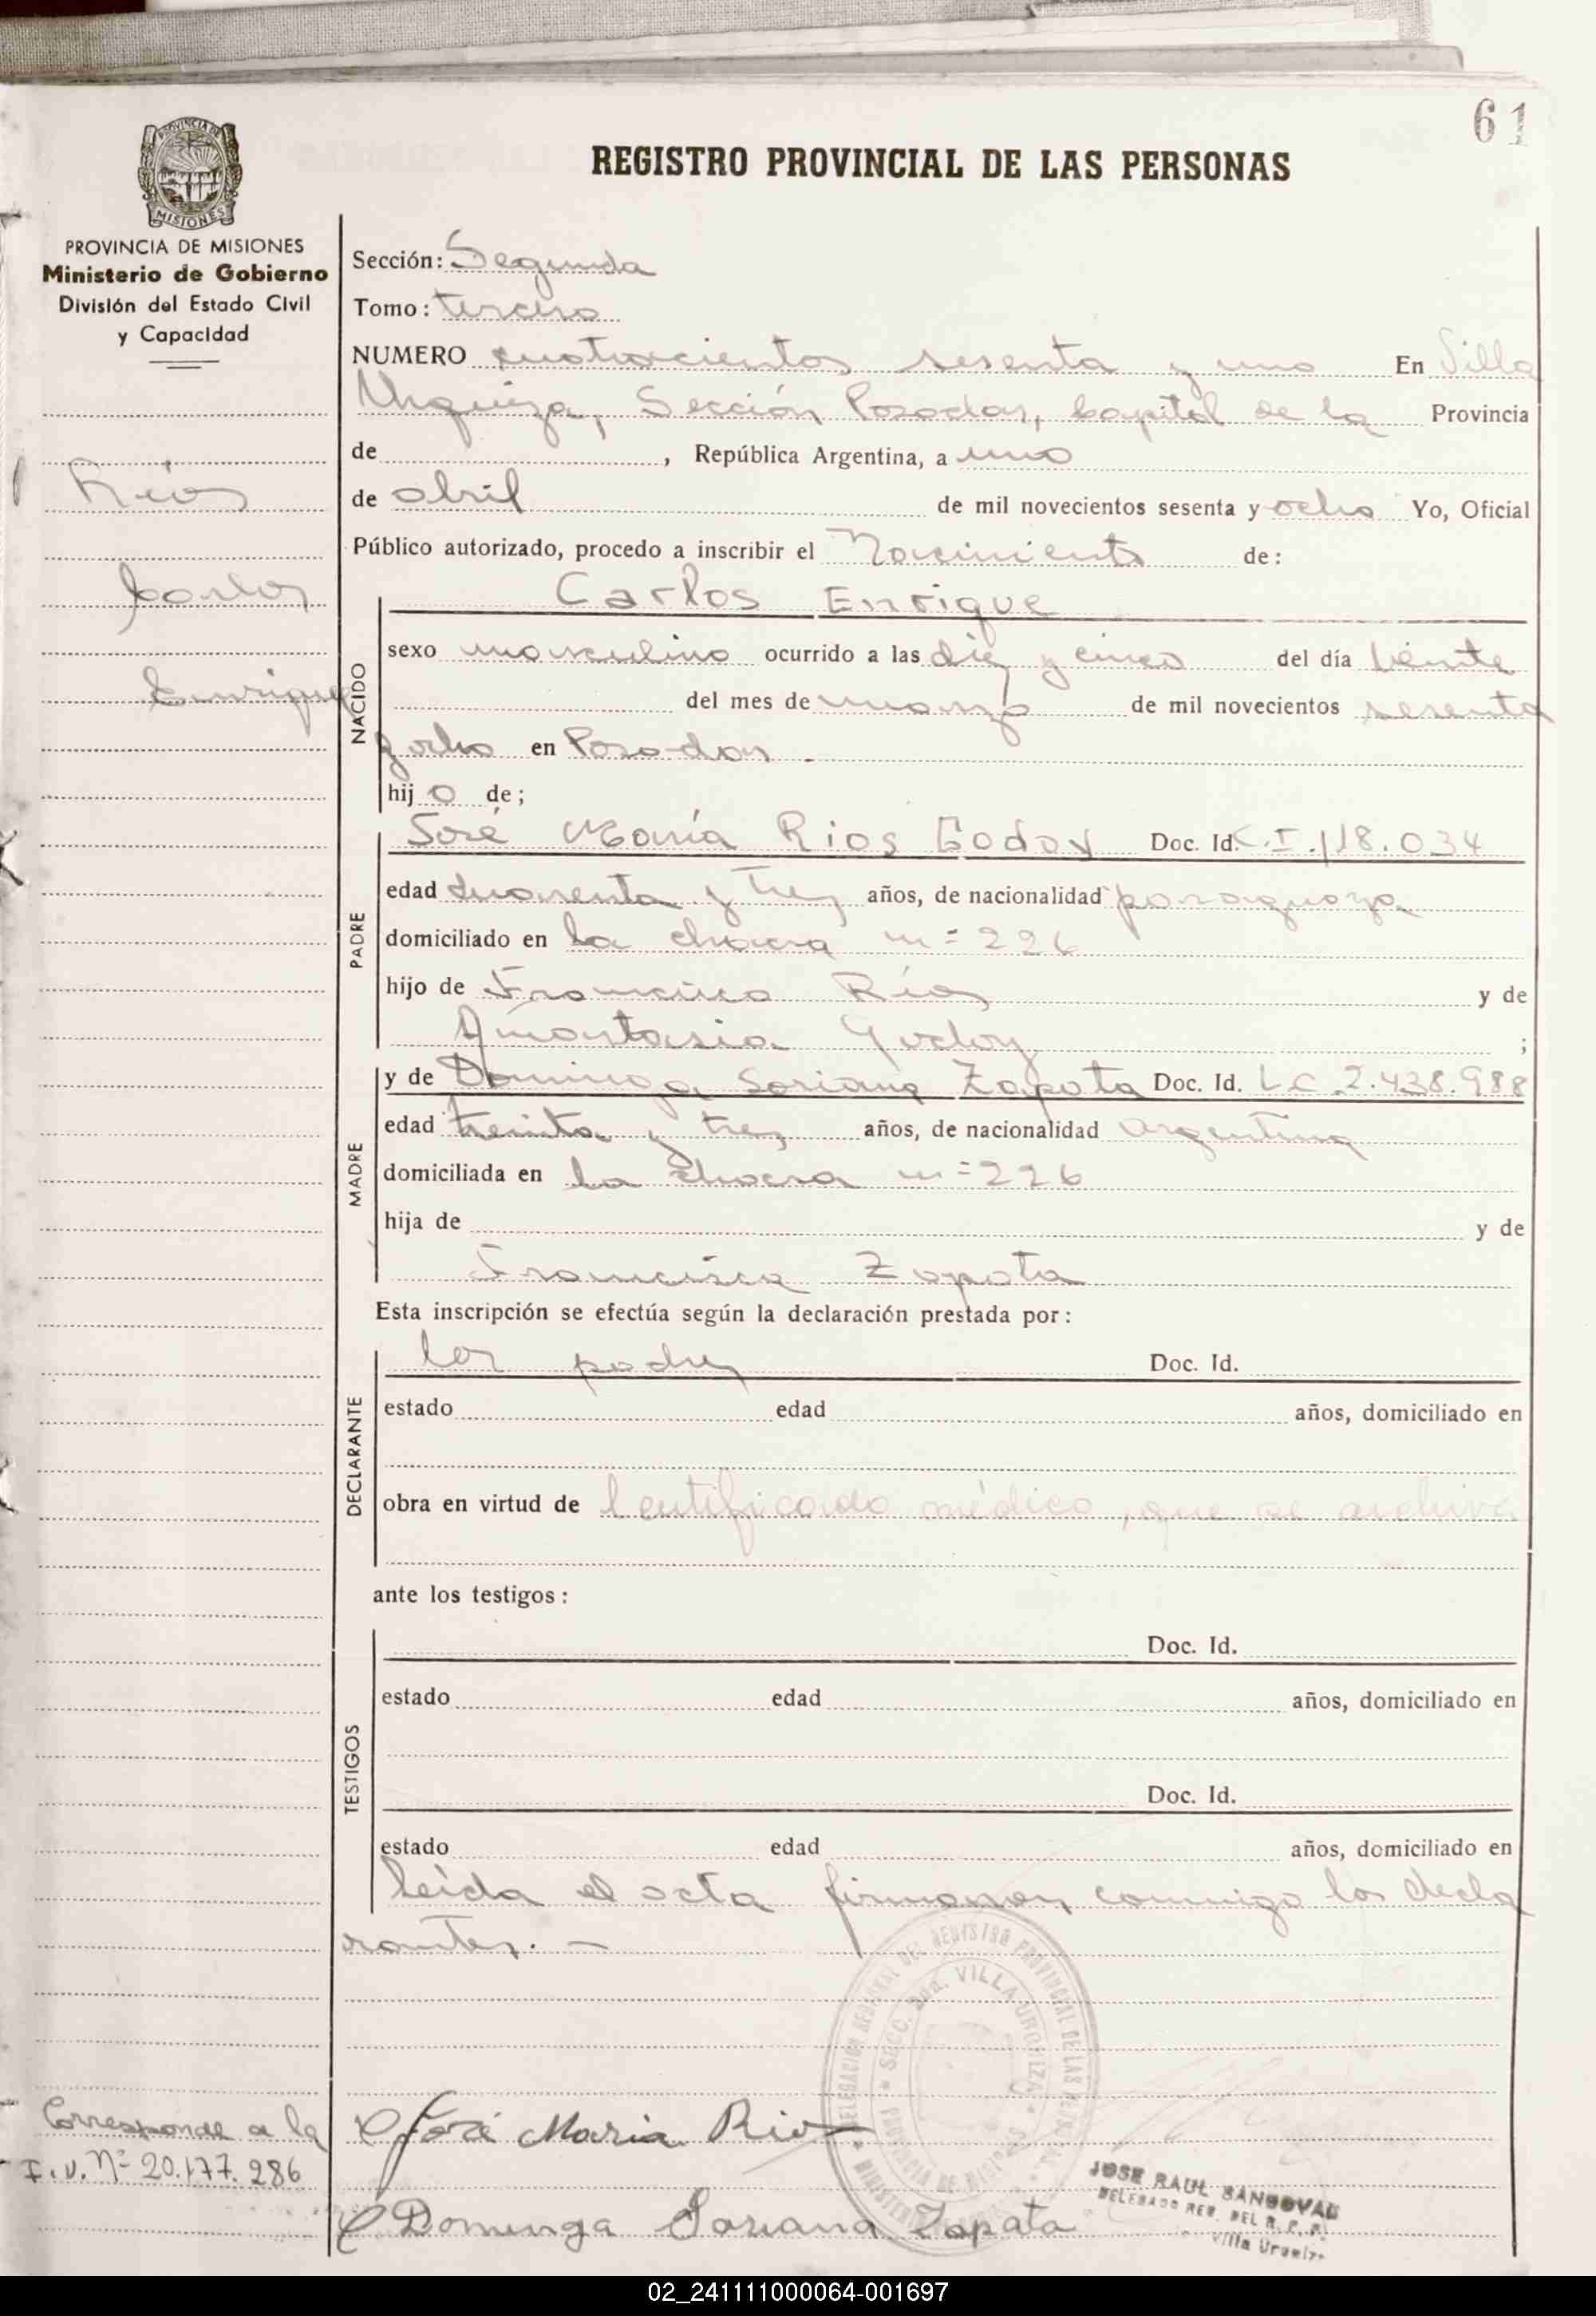 61
REGISTRO PROVINCIAL DE LAS PERSONAS
PROVINCIA DE MISIONES
PROVINCIA DE MISIONES
Ministerio de Gobierno
División del Estado Civil
y Capacidad
Ríos
Carlos
Enrique
Sección: Segunda
Tomo: tercero
NUMERO cuatrocientos sesenta y uno En Villa
Urquiza, Sección Posadas, Capital de la Provincia
de , República Argentina, a uno
de abril de mil novecientos sesenta y ocho Yo, Oficial
Público autorizado, procedo a inscribir el Nacimiento de:
NACIDO
Carlos Enrique
sexo masculino ocurrido a las diez y cinco del día veinte
del mes de marzo de mil novecientos sesenta
y ocho en Posadas.
hij o de;
PADRE
José María Rios Godoy Doc. Id. C.I. 118.034
edad cuarenta y tres años, de nacionalidad paraguaya
domiciliado en la chacra nº 226
hijo de Francisco Ríos y de
Anastasia Godoy ;
MADRE
y de Dominga Soriana Zapata Doc. Id. L.C. 2.438.988
edad treinta y tres años, de nacionalidad argentina
domiciliada en la chacra nº 226
hija de y de
Francisca Zapata
Esta inscripción se efectúa según la declaración prestada por:
DECLARANTE
los padres Doc. Id.
estado edad años, domiciliado en
obra en virtud de Certificado médico, que se archiva
ante los testigos:
TESTIGOS
Doc. Id.
estado edad años, domiciliado en
Doc. Id.
estado edad años, domiciliado en
leída el acta firmaron conmigo los decla
rantes. —
DELEGACION REGIONAL DEL REGISTRO PROVINCIAL DE LAS PERSONAS
SECC. 2da. VILLA URQUIZA
PROVINCIA DE MISIONES
Corresponde a la
I.U. Nº 20.177.286
José Maria Rios
Dominga Soriana Zapata
JOSE RAUL SANDOVAL
DELEGADO REG. DEL R. P. P.
Villa Urquiza
02_241111000064-001697